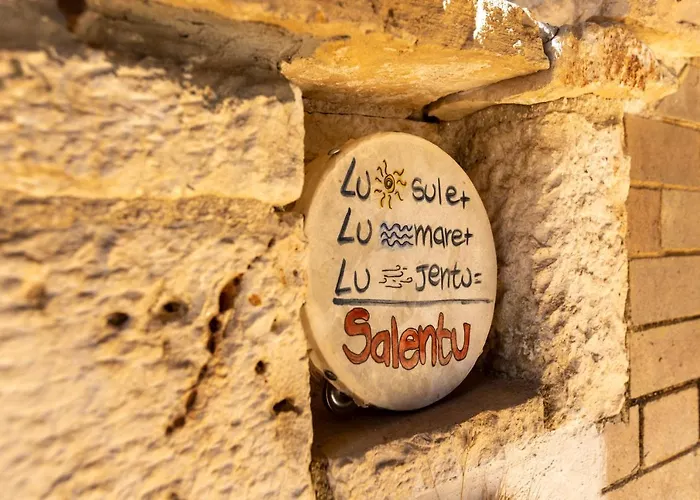 Lu sule+
Lu mare+
Lu Jentu=
Salentu